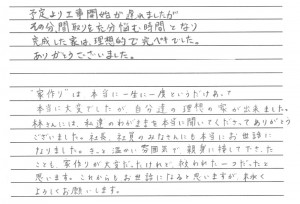 予定より工事開始が遅れましたが
その分、間取りを充分悩む時間となり
完成した家は、理想的で完ペキでした。
ありがとうございました。
"家作り"は本当に一生に一度というだけあって
本当に大変でしたが自分達の理想の家が出来ました。
さんには、私達のわがままを本当に聞いてくださってありがとう
ございました。社長、社員のみなさんにも本当にお世話に
なりました。ずっと温かい雰囲気で親身に接して下さった
ことも、家作りが大変だったけれど、救われた一つだったと
思います。これからもお世話になると思いますが、末永く
よろしくお願いします。